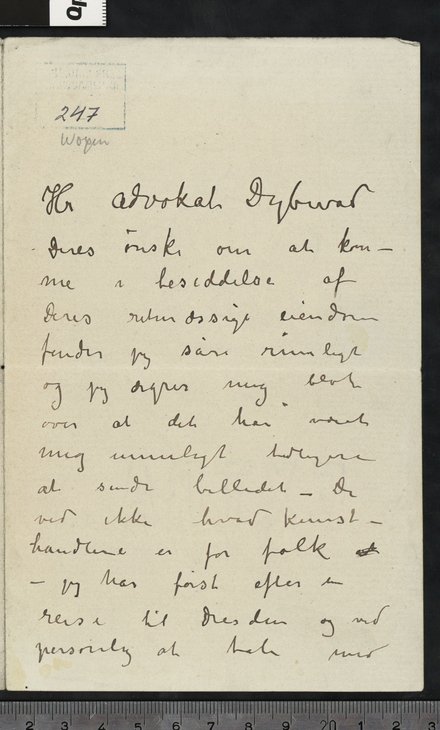 247
Hr advokat Dybwad
Deres ønske om at kom-
me i besiddelse af
Deres retmæssige eiendom
finder jeg såre rimeligt
og jeg ærgrer mig blot
over at det har været
mig umuligt tidligere
at sende billedet – De
ved ikke hvad kunst-
handlere er for folk
– jeg har først efter en
reise til Dresden og ved
personlig at tale med
2 3 4 5 6 7 8 9 20 1 2 3